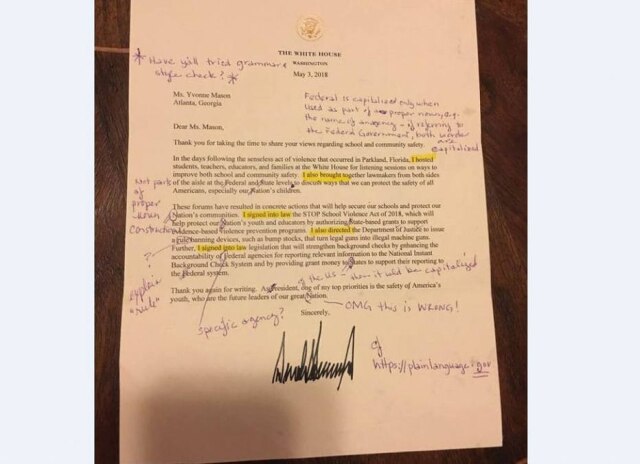 THE WHITE HOUSE
WASHINGTON
May 3, 2018
* Have y'all tried grammar &
style check? *
Ms. Yvonne Mason
Atlanta, Georgia
Federal is capitalized only when
used as part of a proper noun, e.g.
the name of an agency - if referring to
the Federal Government, both words
are
capitalized
Dear Ms. Mason,
Thank you for taking the time to share your views regarding school and community safety.
In the days following the senseless act of violence that occurred in Parkland, Florida, I hosted
students, teachers, educators, and families at the White House for listening sessions on ways to
improve both school and community safety. I also brought together lawmakers from both sides
of the aisle at the Federal and State levels to discuss ways that we can protect the safety of all
Americans, especially our Nation's children.
Not part
of
proper
noun
construction
These forums have resulted in concrete actions that will help secure our schools and protect our
Nation's communities. I signed into law the STOP School Violence Act of 2018, which will
help protect our Nation's youth and educators by authorizing State-based grants to support
evidence-based violence prevention programs. I also directed the Department of Justice to issue
a rule banning devices, such as bump stocks, that turn legal guns into illegal machine guns.
Further, I signed into law legislation that will strengthen background checks by enhancing the
accountability of Federal agencies for reporting relevant information to the National Instant
Background Check System and by providing grant money to States to support their reporting to
the Federal system.
?
explain
"rule"
of the US - then it would be capitalized
Thank you again for writing. As President, one of my top priorities is the safety of America's
youth, who are the future leaders of our great Nation.
OMG this is WRONG!
specific agency?
Sincerely,
https://plainlanguage.gov